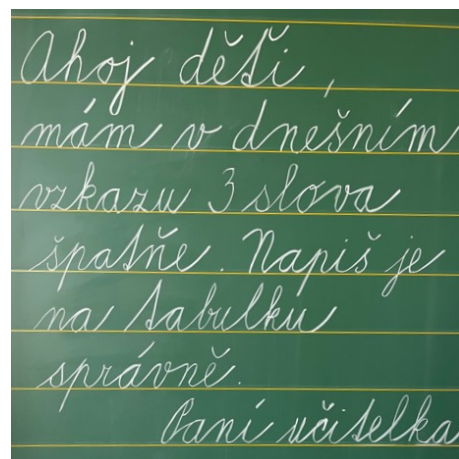 Ahoj děťi,
mám v dnešním
vzkazu 3 slova
špatňe. Napiš je
na tabulku
správně.
Paní učitelka